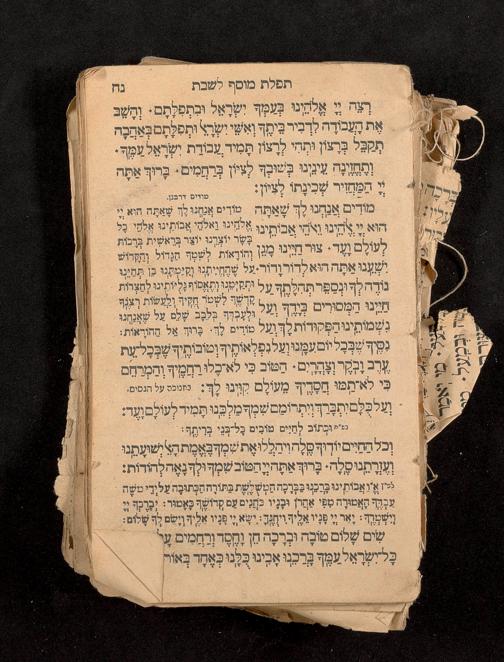 תפלת מוסף לשבת נח
רצה יי אלהינו בעמך ישראל ובתפלתם. והשב
את העבודה לדביר ביתך ואשי ישראל ותפלתם באהבה
תקבל ברצון ותהי לרצון תמיד עבודת ישראל עמך.
ותחזינה עינינו בשובך לציון ברחמים. ברוך אתה
יי המחזיר שכינתו לציון:
מודים אנחנו לך שאתה
הוא יי אלהינו ואלהי אבותינו
לעולם ועד. צור חיינו מגן
ישענו אתה הוא לדור ודור.
נודה לך ונספר תהלתך על
חיינו המסורים בידך ועל
נשמותינו הפקודות לך ועל
מודים דרבנן.
מודים אנחנו לך שאתה הוא יי
אלהינו ואלהי אבותינו אלהי כל
בשר יוצרנו יוצר בראשית ברכות
והודאות לשמך הגדול והקדוש
על שהחייתנו וקימתנו כן תחינו
ותקימנו ותאסוף גליותינו לחצרות
קדשך לשמר חקיך ולעשות רצונך
ולעבדך בלבב שלם על שאנחנו
מודים לך. ברוך אל ההודאות:
נסיך שבכל יום עמנו ועל נפלאותיך וטובותיך שבכל עת
ערב ובקר וצהרים. הטוב כי לא כלו רחמיך והמרחם
כי לא תמו חסדיך מעולם קוינו לך: בחנוכה על הנסים.
ועל כלם יתברך ויתרומם שמך מלכנו תמיד לעולם ועד:
וכתוב לחיים טובים כל בני בריתך:
וכל החיים יודוך סלה ויהללו את שמך באמת האל ישועתנו
ועזרתנו סלה. ברוך אתה יי הטוב שמך ולך נאה להודות:
או"א ברכנו בברכה המשלשת בתורה הכתובה על ידי משה
עבדך האמורה מפי אהרן ובניו כהנים עם קדושך כאמור: יברכך יי
וישמרך: יאר יי פניו אליך ויחנך: ישא יי פניו אליך וישם לך שלום:
שים שלום טובה וברכה חן וחסד ורחמים
כל ישראל עמך ברכנו אבינו כלנו כאחד באור